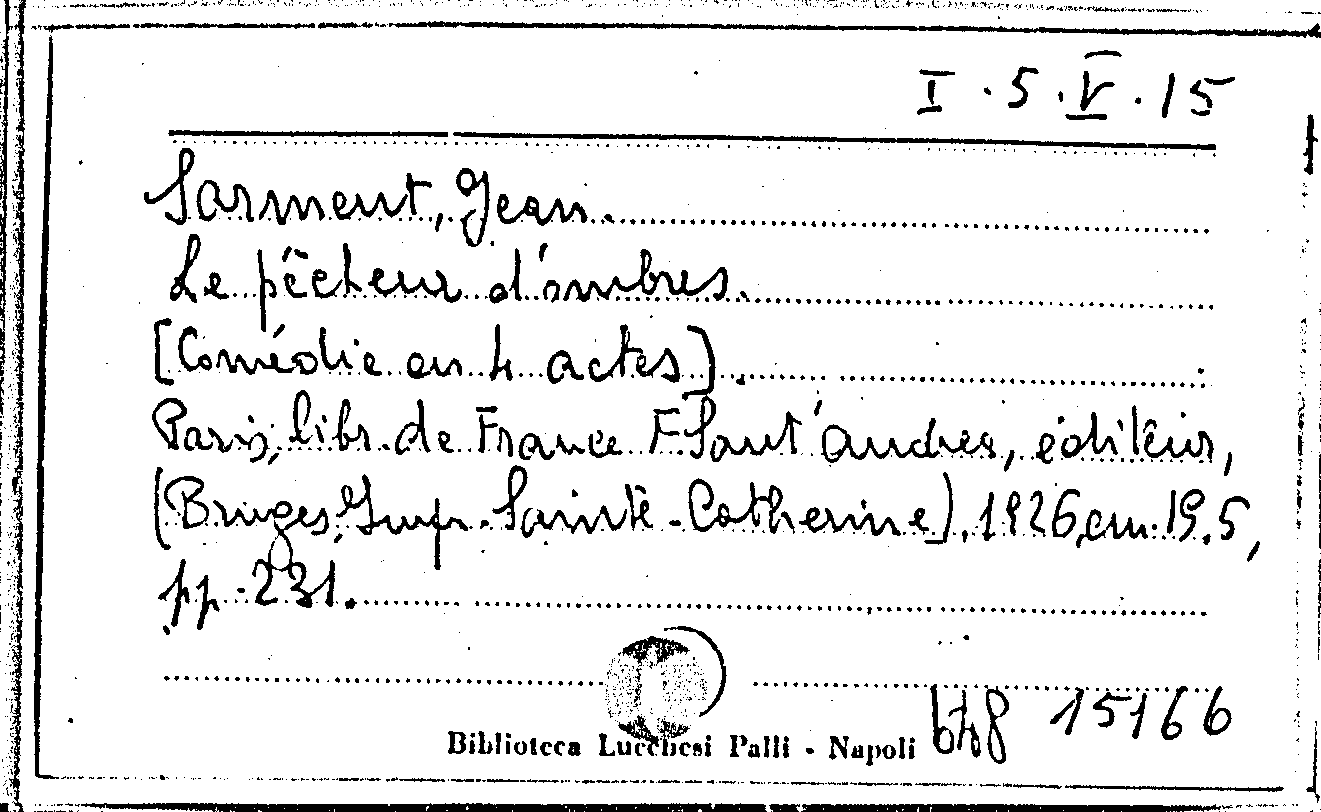 I.5.V.15
Sarment, Jean.
Le pêcheur d'ombres.
[Comédie en 4 actes].
Paris, libr. de France F. Sant'Andrea, éditeur,
(Bruges, Imp. Sainte-Catherine), 1926, cm. 19,5,
pp. 231.
Biblioteca Lucchesi Palli - Napoli
15166